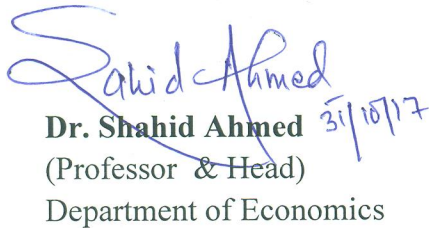 Sahid Ahmed
31/10/17
Dr. Shahid Ahmed
(Professor & Head)
Department of Economics